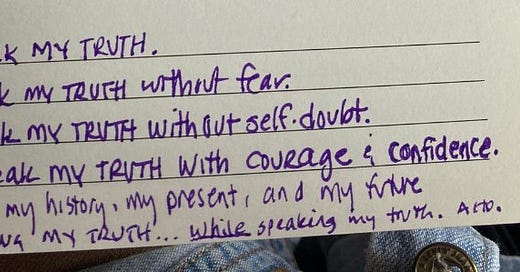 K MY TRUTH.
K MY TRUTH without fear.
K MY TRUTH without self-doubt.
eak MY TRUTH with courage & confidence.
my history, my present, and my future
MY TRUTH... while speaking my truth.